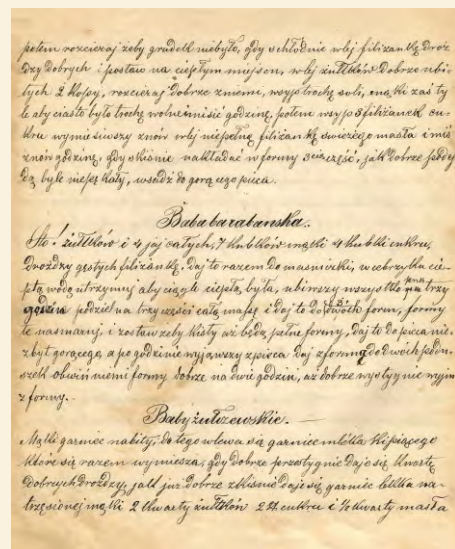 potem rozcieraj żeby grudek niebyło, gdy schłodnie wlej filiżankę droż
dzy dobrych i postaw na ciepłym miejscu, wlej żułtków dobrze ubi
tych 2 kopy, rozcieraj dobrze zniemi, wsyp trochę soli, mąki zaś ty
le aby ciasto było trochę wolne miesić godzinę, potem wsyp 3 filiżanek cu-
kru wymiesiwszy znów wlej niepełną filiżankę swieżego masła i miś
znów godzinę, gdy skisnie nakładać w formy 3cią część, jak dobrze podej
dą byle niepękały, wsadź do gorącego pieca.
Baba barabanska.
Sto! żułtków i 4 jaj całych, 7 kubków mąki 4 kubki cukru,
drożdzy gęstych filiżankę, daj to razem do maśniczki, w cebrzyku cie-
płą wodę utrzymuj aby ciągle ciepłą była, ubiwszy wszystko trzy
godzin podziel na trzy części całą massę i daj to do form, formy
te nasmaruj i zostaw żeby kisły aż będą pełne formy, daj te do pieca nie-
zbyt gorącego, a po godzinie wyjąwszy z pieca daj z formą do dwóch podu-
szek obwiń niemi formy dobrze na dwie godzin, aż dobrze wystygnie wyjm
z formy.
Baby żułczewskie.
Mąki garniec nabity, do tego wlewa się garniec mléka kipiącego
które się razem wymiesza, gdy dobrze przestygnie daje się kwartę
dobrych drożdzy, jak już dobrze zkisnie daje się garniec lekka na-
trzęsionej mąki 2 kwarty żułtków 2 ℔ cukru i ½ kwarty masła